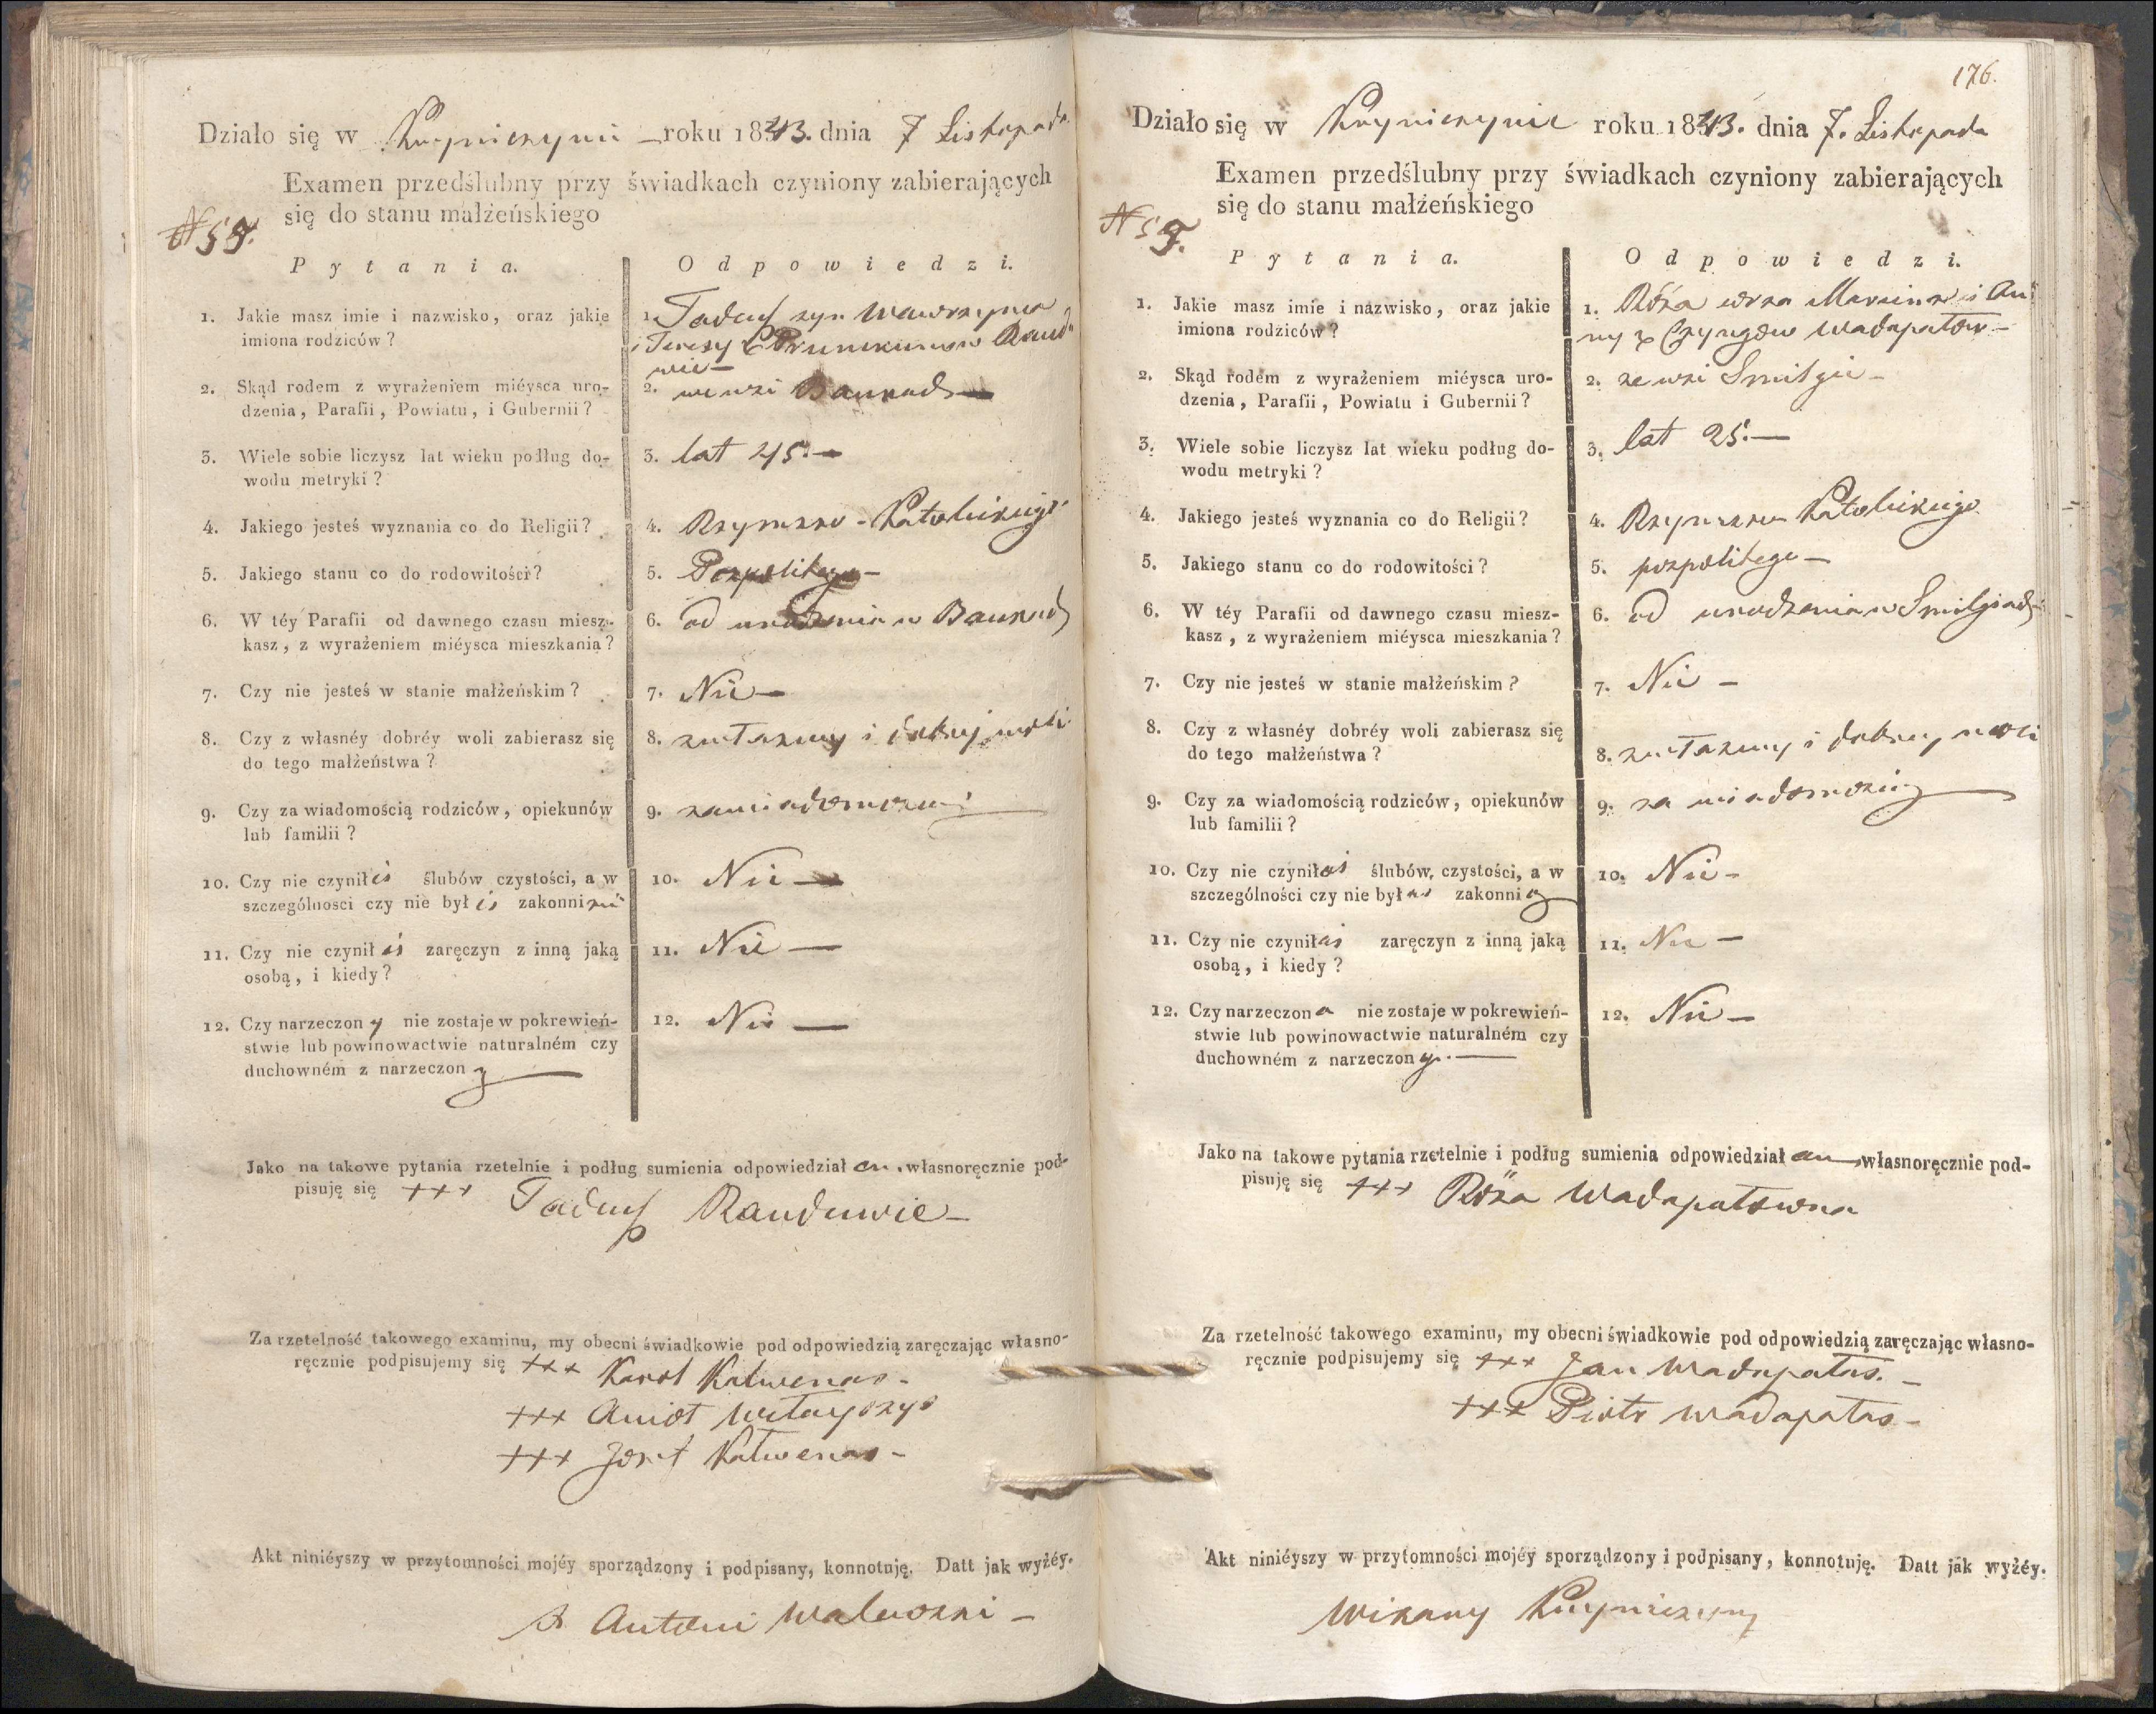 Działo się w Kryniczynie — roku 1843. dnia 7 Listopada
Examen przedślubny przy świadkach czyniony zabierających
się do stanu małżeńskiego
P y t a n i a.
O d p o w i e d z i.
1. Jakie masz imie i nazwisko, oraz jakie
imiona rodziców?
1. Tadeusz syn Wawrzyńca
i Teresy z
2. Skąd rodem z wyrażeniem miéysca uro-
dzenia, Parafii, Powiatu, i Gubernii?
2. we wsi
3. Wiele sobie liczysz lat wieku podług do-
wodu metryki?
3. lat 45.—
4. Jakiego jesteś wyznania co do Religii?
4. Rzymsko-Katolickiego
5. Jakiego stanu co do rodowitości?
5. Pospolitego—
6. W téy Parafii od dawnego czasu miesz-
kasz, z wyrażeniem miéysca mieszkania?
6. od urodzenia w
7. Czy nie jesteś w stanie małżeńskim?
7. Nie—
8. Czy z własnéy dobréy woli zabierasz się
do tego małżeństwa?
8. z własnéy i dobréj woli
9. Czy za wiadomością rodziców, opiekunów
lub familii?
9. za wiadomością
10. Czy nie czyniłeś ślubów czystości, a w
szczególnosci czy nie byłeś zakonnikiem
10. Nie—
11. Czy nie czyniłeś zaręczyn z inną jaką
osobą, i kiedy?
11. Nie—
12. Czy narzeczony nie zostaje w pokrewień-
stwie lub powinowactwie naturalném czy
duchowném z narzeczoną
12. Nie—
Jako na takowe pytania rzetelnie i podług sumienia odpowiedziałem, własnoręcznie pod-
pisuję się +++ Tadeusz Rauduwie—
Za rzetelność takowego examinu, my obecni świadkowie pod odpowiedzią zaręczając własno-
ręcznie podpisujemy się +++ Karol Kalwenas—
+++ Anioł
+++ Józef Kalwenas—
Akt niniéyszy w przytomności mojéy sporządzony i podpisany, konnotuję. Datt jak wyżéy.
X. Antoni Walewski—
176.
Działo się w Kryniczynie roku 1843. dnia 7. Listopada
Examen przedślubny przy świadkach czyniony zabierających
się do stanu małżeńskiego
P y t a n i a.
O d p o w i e d z i.
1. Jakie masz imie i nazwisko, oraz jakie
imiona rodziców?
1. Róża córka Marcina i An-
ny z Wadapałów—
2. Skąd rodem z wyrażeniem miéysca uro-
dzenia, Parafii, Powiatu i Gubernii?
2. ze wsi Smilgie—
3. Wiele sobie liczysz lat wieku podług do-
wodu metryki?
3. lat 25.—
4. Jakiego jesteś wyznania co do Religii?
4. Rzymsko Katolickiego
5. Jakiego stanu co do rodowitości?
5. pospolitego—
6. W téy Parafii od dawnego czasu miesz-
kasz, z wyrażeniem miéysca mieszkania?
6. od urodzenia w
7. Czy nie jesteś w stanie małżeńskim?
7. Nie—
8. Czy z własnéy dobréy woli zabierasz się
do tego małżeństwa?
8. z własnéy i dobréy woli
9. Czy za wiadomością rodziców, opiekunów
lub familii?
9. za wiadomością
10. Czy nie czyniłaś ślubów, czystości, a w
szczególności czy nie byłaś zakonnicą
10. Nie—
11. Czy nie czyniłaś zaręczyn z inną jaką
osobą, i kiedy?
11. Nie—
12. Czy narzeczona nie zostaje w pokrewień-
stwie lub powinowactwie naturalném czy
duchowném z narzeczonym.—
12. Nie—
Jako na takowe pytania rzetelnie i podług sumienia odpowiedziałam, własnoręcznie pod-
pisuję się +++ Róża Wadapałowna
Za rzetelność takowego examinu, my obecni świadkowie pod odpowiedzią zaręczając własno-
ręcznie podpisujemy się +++ Jan Wadapałas.—
+++ Piotr Wadapałas—
Akt niniéyszy w przytomności mojéy sporządzony i podpisany, konnotuję. Datt jak wyżéy.
Wikary Krynicżyny